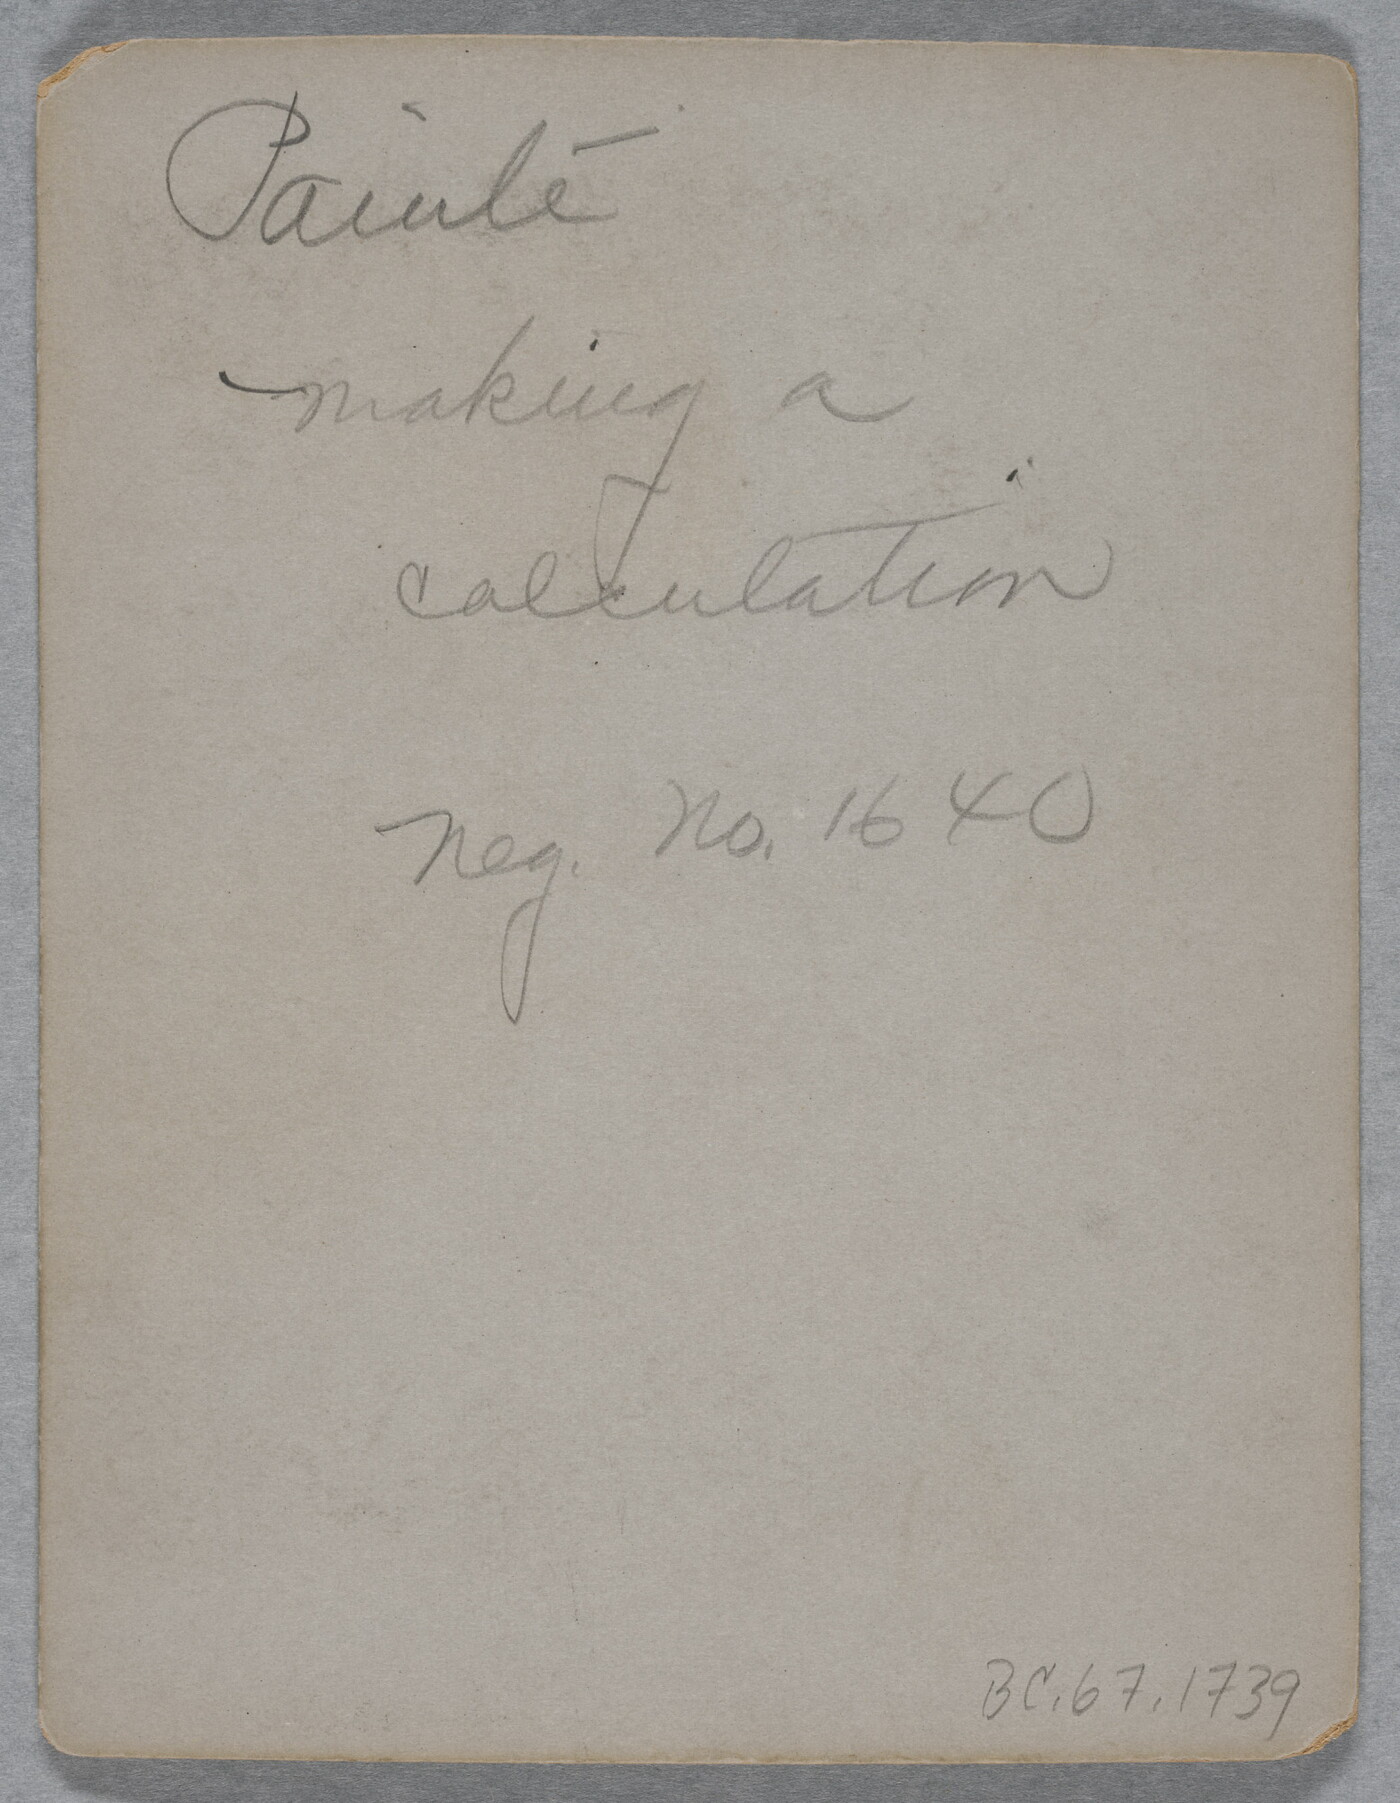 Paiute
making a
calculation
Neg. No. 1640
BC.67.1739